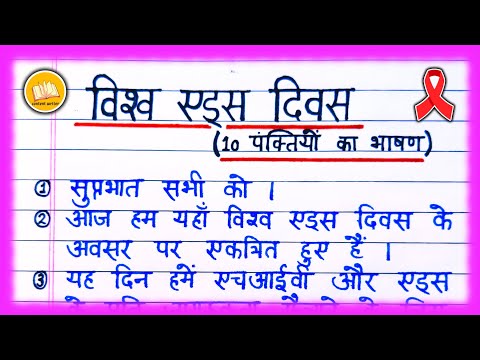 content writer
विश्व एड्स दिवस
(10 पंक्तियों का भाषण)
① सुप्रभात सभी को ।
② आज हम यहाँ विश्व एड्स दिवस के
अवसर पर एकत्रित हुए हैं ।
③ यह दिन हमें एचआईवी और एड्स